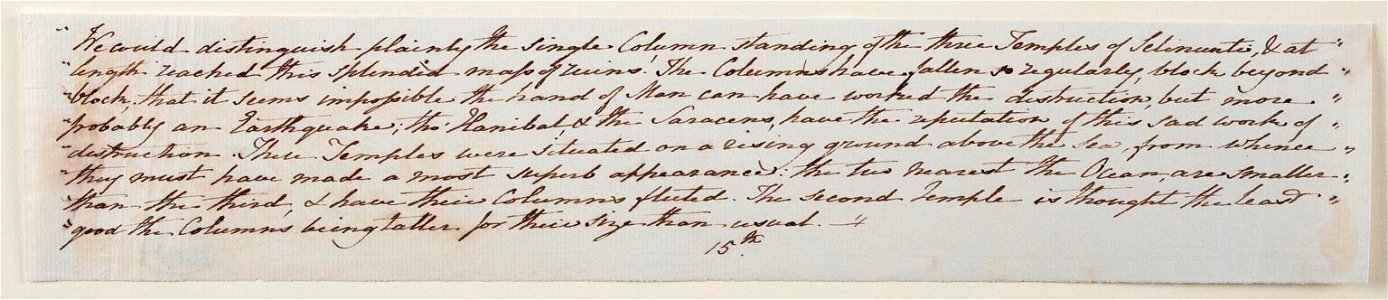 " We could distinguish plainly the single Column standing of the three Temples of Selinunte, & at "
" length reached this splendid mass of ruins! The Columns have fallen so regularly, block beyond "
" block, that it seems impossible the hand of Man can have worked the destruction, but more "
" probably an Earthquake; tho' Hanibal, & the Saracens, have the reputation of this sad work of "
" destruction. These Temples were situated on a rising ground above the Sea, from whence "
" they must have made a most superb appearance: the two nearest the Ocean, are smaller "
" than the third, & have their Columns fluted. The second Temple is thought the least "
" good the Columns being taller for their size than usual. "
15th.